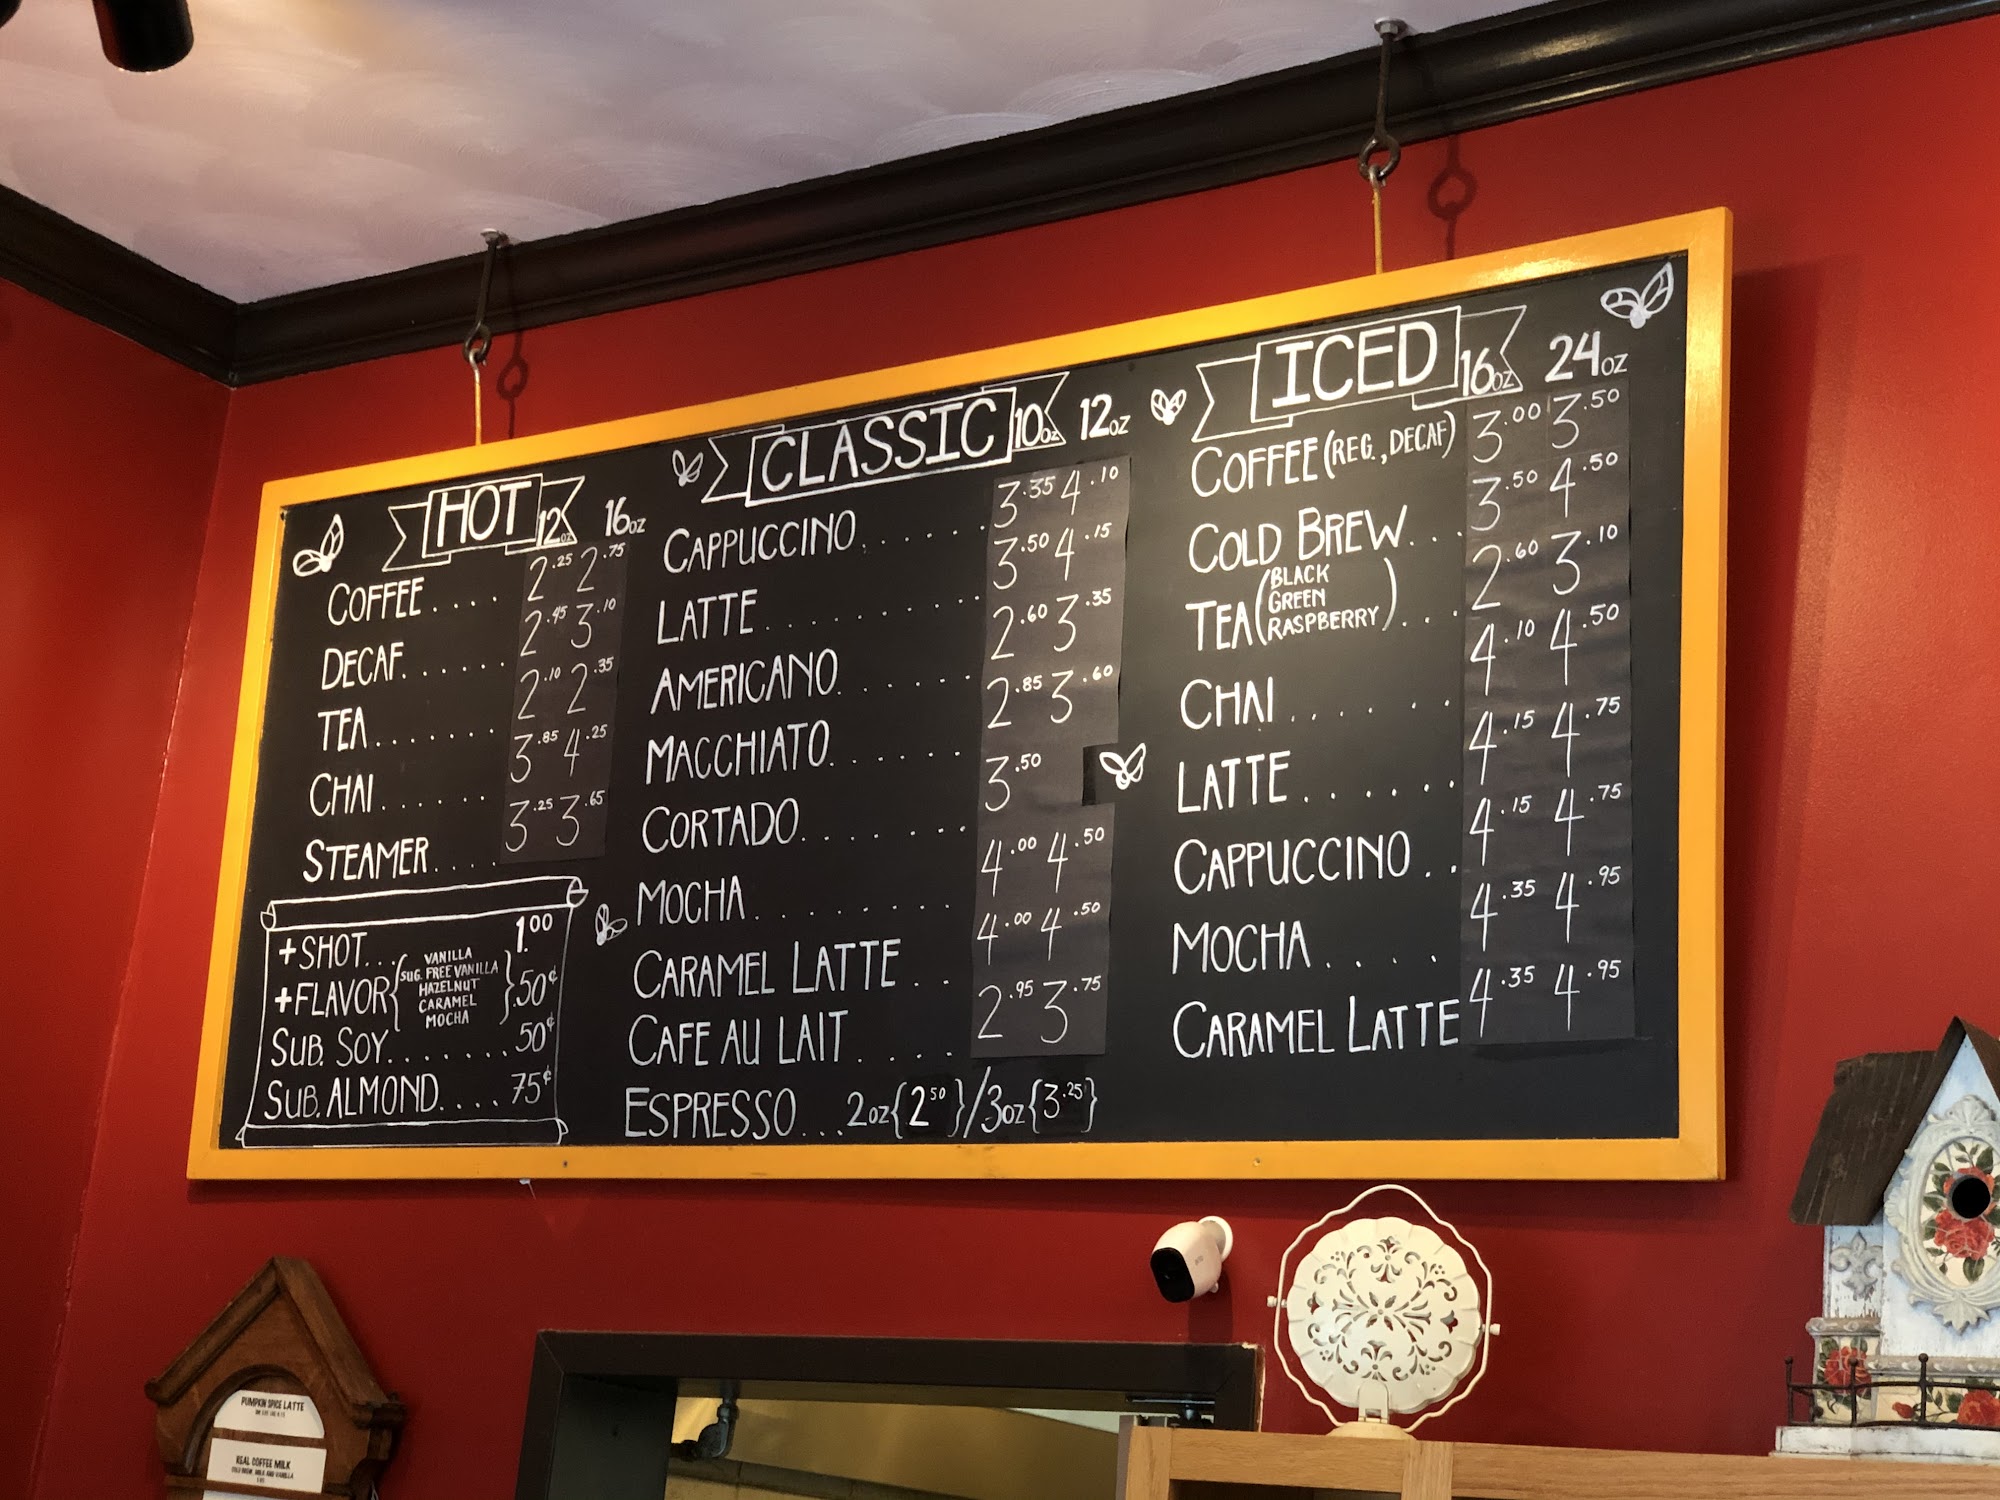 HOT 12oz 16oz
COFFEE.... 2.25 2.75
DECAF...... 2.45 3.10
TEA....... 2.10 2.35
CHAI...... 3.85 4.25
STEAMER.... 3.25 3.65
+SHOT... 1.00
+FLAVOR { VANILLA
SUG. FREE VANILLA
HAZELNUT
CARAMEL
MOCHA } .50¢
SUB. SOY....... 50¢
SUB. ALMOND.... 75¢
CLASSIC 10oz 12oz
CAPPUCCINO...... 3.35 4.10
LATTE......... 3.50 4.15
AMERICANO...... 2.60 3.35
MACCHIATO...... 2.85 3.60
CORTADO....... 3.50
MOCHA........ 4.00 4.50
CARAMEL LATTE.. 4.00 4.50
CAFE AU LAIT.... 2.95 3.75
ESPRESSO... 2oz{2.50}/3oz{3.25}
ICED 16oz 24oz
COFFEE (REG., DECAF) 3.00 3.50
COLD BREW... 3.50 4.50
TEA (BLACK
GREEN
RASPBERRY)... 2.60 3.10
CHAI...... 4.10 4.50
LATTE...... 4.15 4.75
CAPPUCCINO.. 4.15 4.75
MOCHA.... 4.35 4.95
CARAMEL LATTE 4.35 4.95
PUMPKIN SPICE LATTE
REAL COFFEE MILK
COLD BREW, MILK AND VANILLA